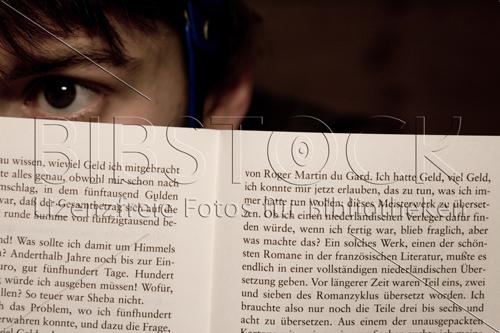 BIBSTOCK
Lizenzfreie Fotos für Bibliotheken
au wissen, wieviel Geld ich mitgebracht
te alles genau, obwohl mir schon nach
mschlag, in dem fünftausend Gulden
war, daß der Gesamtbetrag sich auf die
runde Summe von fünfzigtausend be-
nd! Was sollte ich damit um Himmels
n? Anderthalb Jahre noch bis zur Ein-
uro, gut fünfhundert Tage. Hundert
würde ich ausgeben müssen! Wofür,
llen? So teuer war Sheba nicht.
h das Problem, wo ich fünfhundert
erwahren konnte, und dazu die Frage,
von Roger Martin du Gard. Ich hatte Geld, viel Geld,
ich konnte mir jetzt erlauben, das zu tun, was ich im-
mer hatte tun wollen, dieses Meisterwerk zu überset-
zen. Ob ich einen niederländischen Verleger dafür fin-
den würde, wenn ich fertig war, blieb fraglich, aber
was machte das? Ein solches Werk, einen der schön-
sten Romane in der französischen Literatur, mußte es
endlich in einer vollständigen niederländischen Über-
setzung geben. Vor längerer Zeit waren Teil eins, zwei
und sieben des Romanzyklus übersetzt worden. Ich
brauchte also nur noch die Teile drei bis sechs und
acht zu übersetzen. Aus einem der unausgepackten